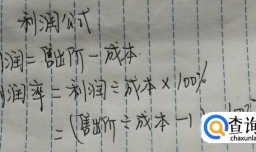 利润公式
润=售出价-成本
润率=利润÷成本×100%
=(售出价÷成本-1)
查询
chaxunla